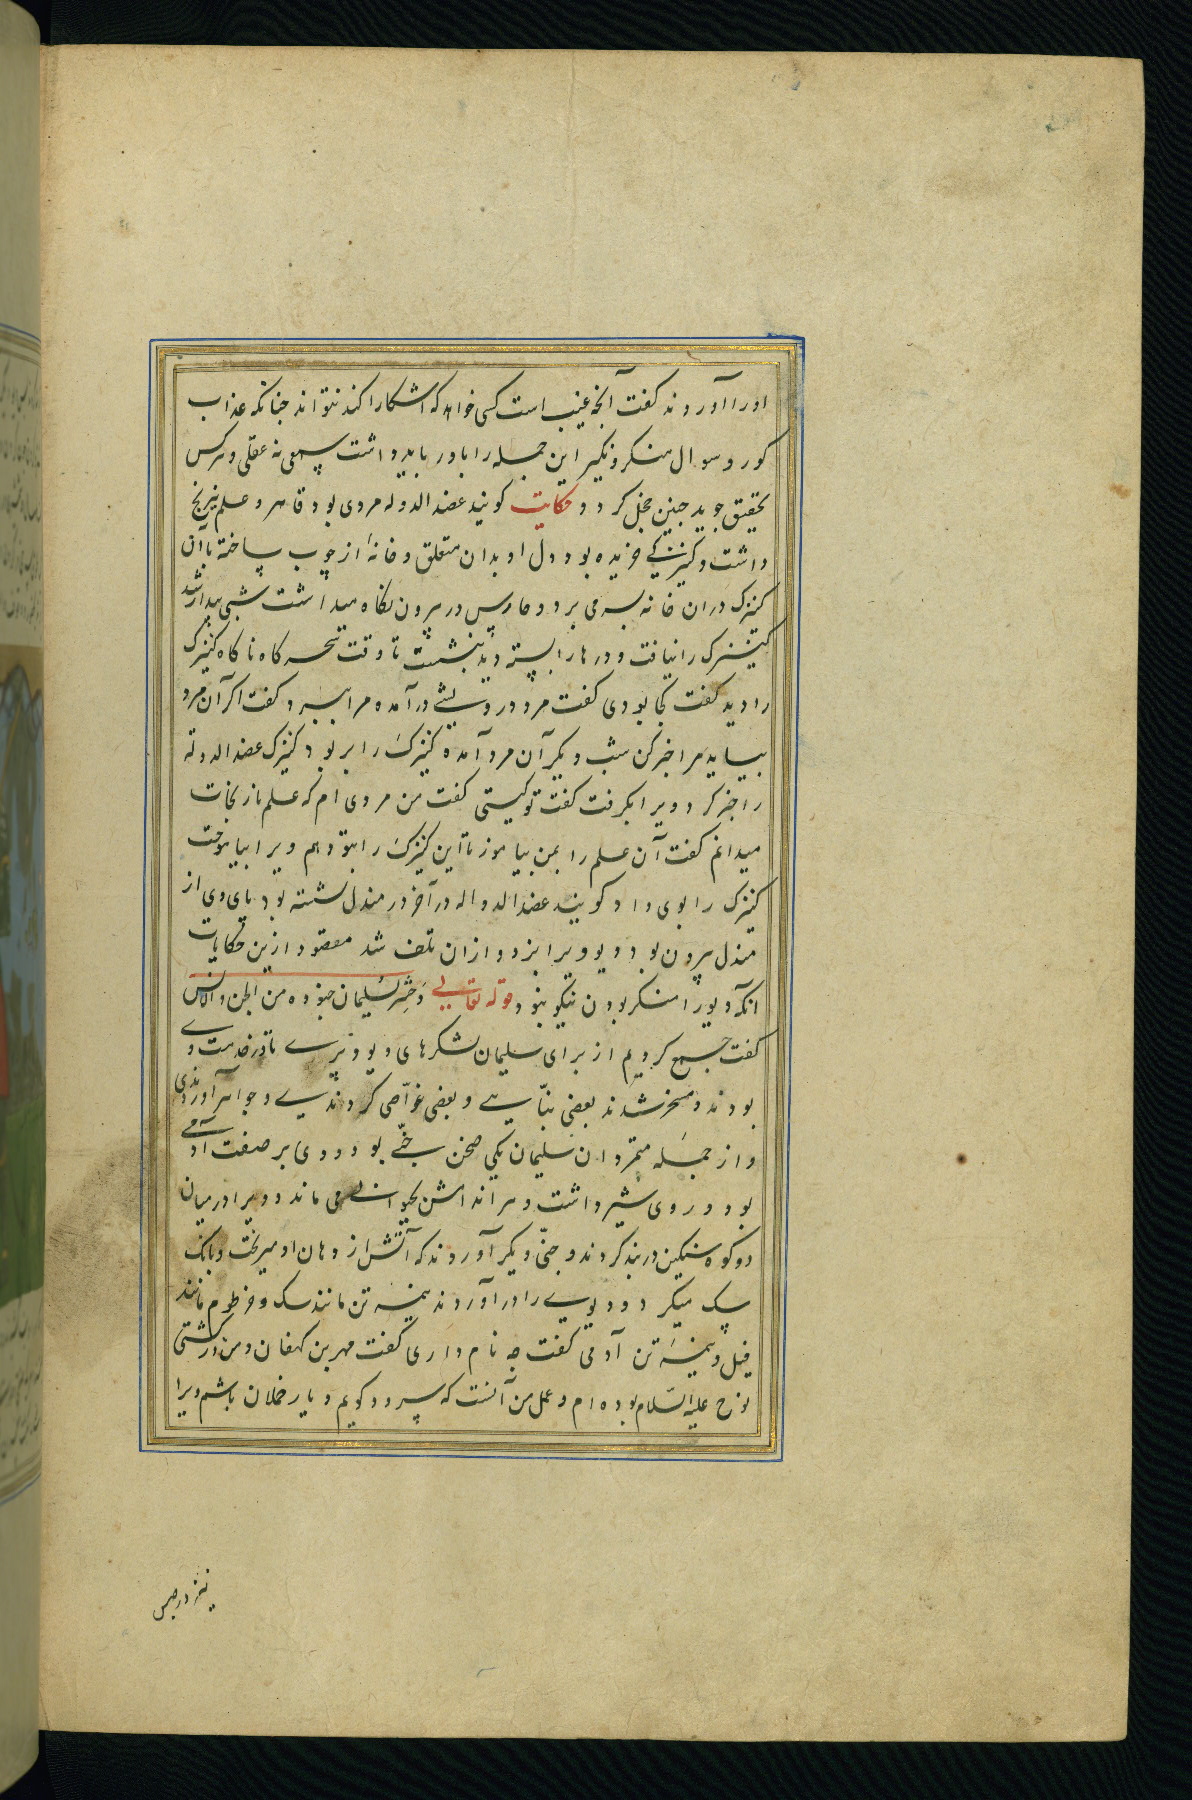 اورا آوردند کفت آنجه غیب است کسی خواهد که آشکارا کند نتواند جنانکه عذاب
کور و سوال منکر و نکیر این جمله را باور باید داشت سمعی نه عقلی و هرکس
تحقیق جوید جنین خجل کردد حکایت کویند عضد الدوله مردی بود قاهر و علم نیرنج
داشت و کنیزکی خریده بود دل او بدان متعلق و خانهٔ از جوب ساخته با آن
کنیزک دران خانه بسر می برد و حارس در بیرون نکاه میداشت شبی بیدار شد
کنیزک را نیافت و درها را بسته دید بنشست تا وقت سحرکاه ناکاه کنیزک
را دید کفت کجا بودی کفت مرد درویشی درآمد و مرا ببرد کفت اکر آن مرد
بیاید مرا خبر کن شب دیکر آن مرد آمد و کنیزک را بربود کنیزک عضد الدوله
را خبر کرد ویرا بکرفت کفت تو کیستی کفت من مردی ام که علم نارنجات
میدانم کفت آن علم را بمن بیاموز تا این کنیزک را بتو دهم ویرا بیاموخت
کنیزک را بوی داد کویند عضد الدوله در آخر در مندل نشسته بود پای وی از
مندل بیرون بود دیو ویرا بزد و ازان تلف شد مقصود ازین حکایات
آنکه دیو را منکر بودن نیکو نبود قوله تعالی وَحُشِرَ لِسُلیمان جنوده من الجن والانس
کفت جمع کردیم از برای سلیمان لشکرهای دیو و پری تا در خدمت وی
بودند و مسخر شدند بعضی بنّایی و بعضی غوّاصی کردندی و جواهر آوردندی
و از جمله متمردان سلیمان یکی صخر جنّی بود و وی بر صفت آدمی
بود و روی شیر داشت و هر اندامش بحیوانی می ماند و ویرا در میان
دو کوه سنکین در بند کردند و جنّی دیکر آوردند که آتش از دهان او میریخت و بانک
سک میکرد و دیوی را درآوردند نیمه تن مانند سک و خرطوم مانند
فیل و نیمه تن آدمی کفت جه نام داری کفت مهر بن کهفان و من در کشتی
نوح علیه السّلام بوده ام و عمل من آنست که سرود کویم و یار خملان باشم ویرا
نیز در حبس